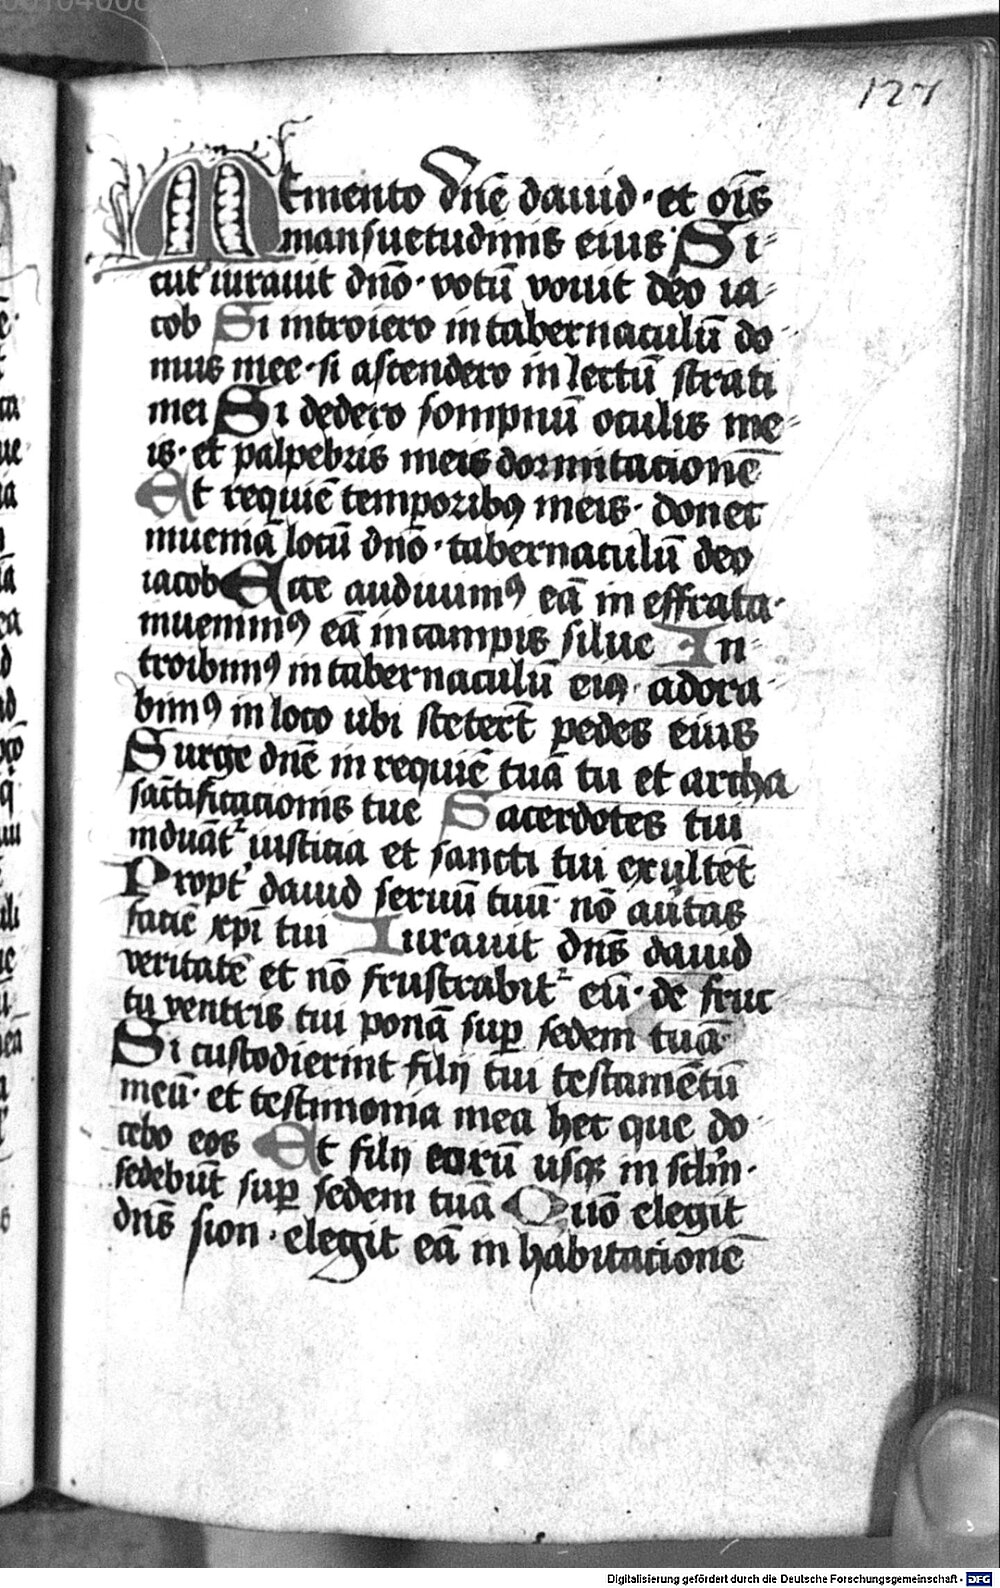 127
Memento dn̄e dauid · et oīs
mansuetudinis eius Si-
cut iurauit dn̄o · votū vouit deo ia-
cob Si introiero in tabernaculū do-
mus mee · si ascendero in lectū strati
mei Si dedero sompnū oculis me-
is · et palpebris meis dormitacionē
Et requiē temporibꝰ meis · donec
inueniā locū dn̄o · tabernaculū deo
iacob Ecce audiuimꝰ eā in effrata ·
inuenimꝰ eā in campis silue In-
troibimꝰ in tabernaculū eiꝰ · adora-
bimꝰ in loco ubi steterūt pedes eius
Surge dn̄e in requiē tuā tu et archa
sāctificacionis tue Sacerdotes tui
induāt᷑ iusticia et sancti tui exultēt
Propt᷑ dauid seruū tuū · nō au᷑tas
faciē xp̄i tui Iurauit dn̄s dauid
veritatē et nō frustrabit᷑ eū · de fruc-
tu ventris tui ponā suꝑ sedem tuā
Si custodierint filij tui testamētū
meū · et testimonia mea hec que do-
cebo eos Et filij eorū usqꝫ in sclm̄ ·
sedebūt suꝑ sedem tuā Qm̄ elegit
dn̄s sion · elegit eā in habitacionē
Digitalisierung gefördert durch die Deutsche Forschungsgemeinschaft - DFG